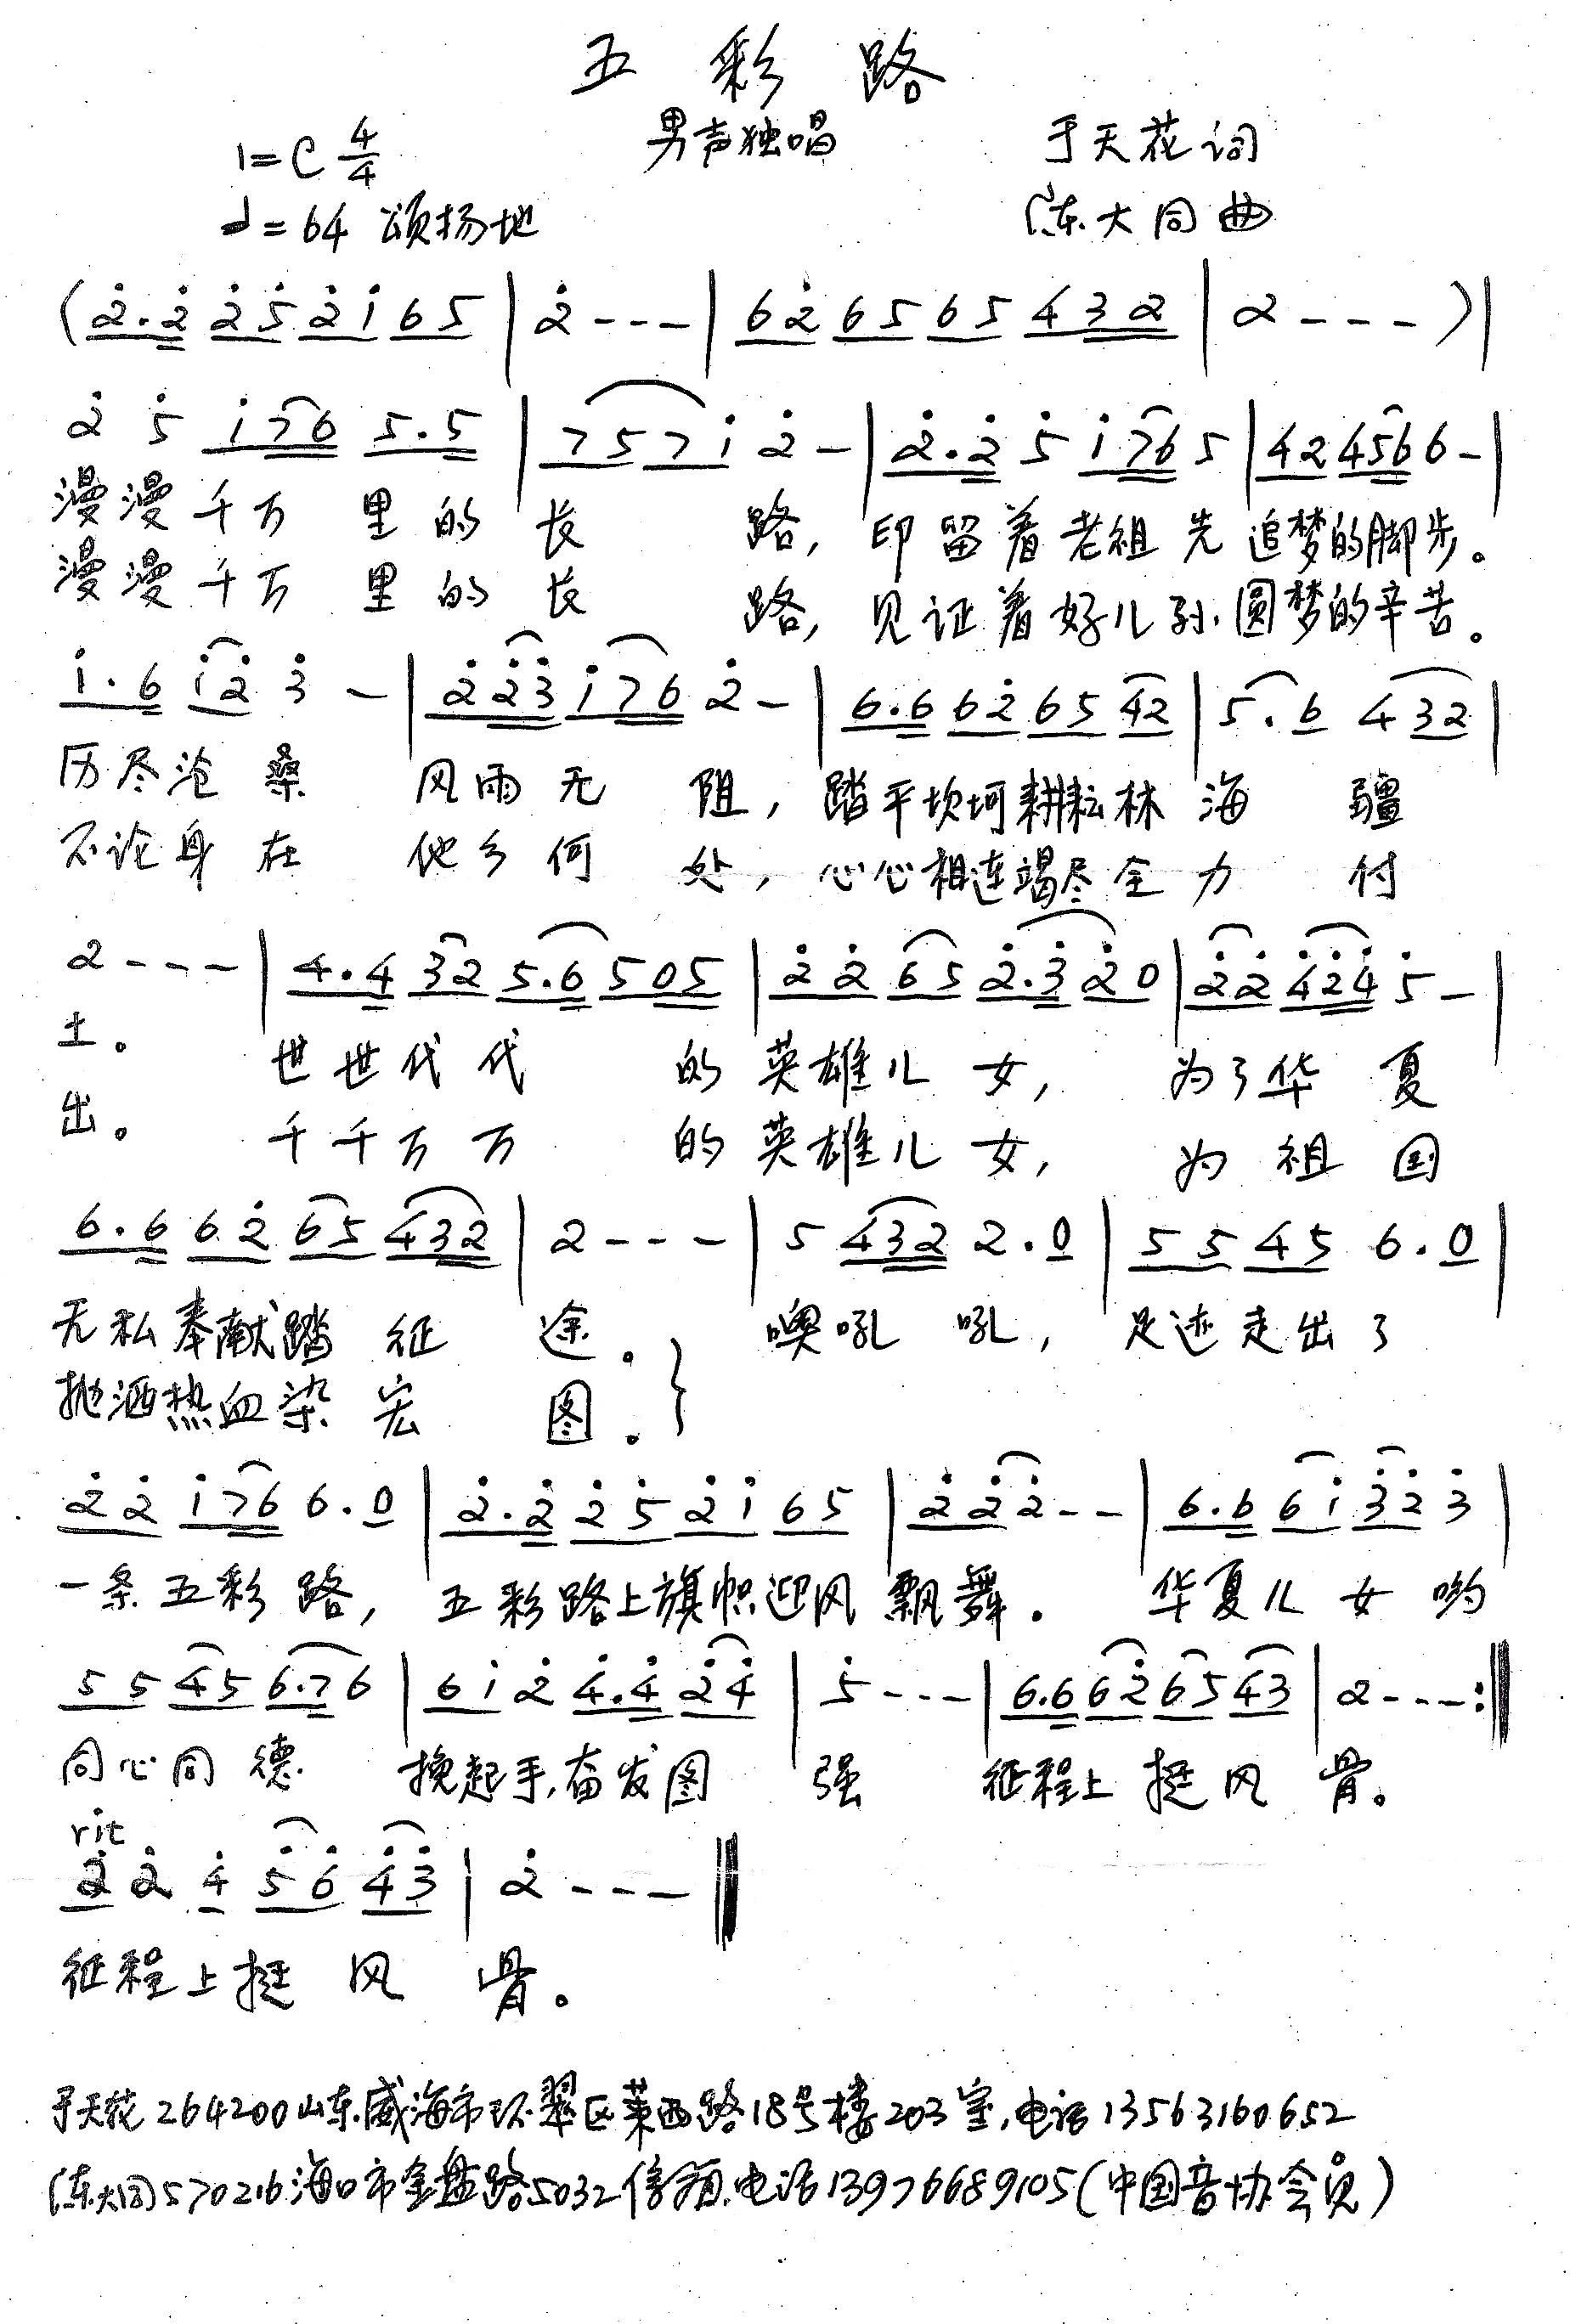 五彩路
1=C 4/4 男声独唱 于天花词
♩=64 颂扬地 陈大同曲
(2̇.2̇ 2̇5̇ 2̇1̇ 65 | 2̇--- | 62̇ 65 65 432 | 2---)|
2̇ 5̇ 1̇76 5.5 | 7571̇ 2̇- | 2̇.2̇ 5̇ 1̇76 5 | 42 456 6- |
漫漫千万里的长路,印留着老祖先追梦的脚步。
漫漫千万里的长路,见证着好儿孙圆梦的辛苦。
1̇.6 1̇2̇ 3̇ - | 2̇2̇3̇ 1̇76 2̇- | 6.6 62̇ 65 42 | 5.6 432 |
历尽沧桑风雨无阻,踏平坎坷耕耘林海疆
不论身在他乡何处,心心相连竭尽全力付
2--- | 4.4 32 5.6 505 | 2̇2̇ 65 2̇.3̇ 2̇0 | 2̇2̇ 4̇2̇4̇ 5̇- |
土。世世代代的英雄儿女,为了华夏
出。千千万万的英雄儿女,为祖国
6.6 62̇ 65 432 | 2--- | 5 432 2.0 | 55 45 6.0 |
无私奉献踏征途。噢吼吼,足迹走出了
抛洒热血染宏图。
2̇2̇ 1̇76 6.0 | 2̇.2̇ 2̇5̇ 2̇1̇ 65 | 2̇2̇2̇-- | 6.6 61̇ 3̇2̇ 3̇ |
一条五彩路,五彩路上旗帜迎风飘舞。华夏儿女哟
55 45 6.7 6 | 61̇ 2̇ 4̇.4̇ 2̇4̇ | 5̇--- | 6.6 62̇ 65 43 | 2---:‖
同心同德挽起手,奋发图强征程上挺风骨。
rit
2̇ 2̇ 4̇ 5̇6̇ 4̇3̇ | 2̇---‖
征程上挺风骨。
于天花264200山东威海市环翠区莱西路18号楼203室,电话13563160652
(陈大同)570216海口市金盘路5032信箱.电话13976689105(中国音协会员)